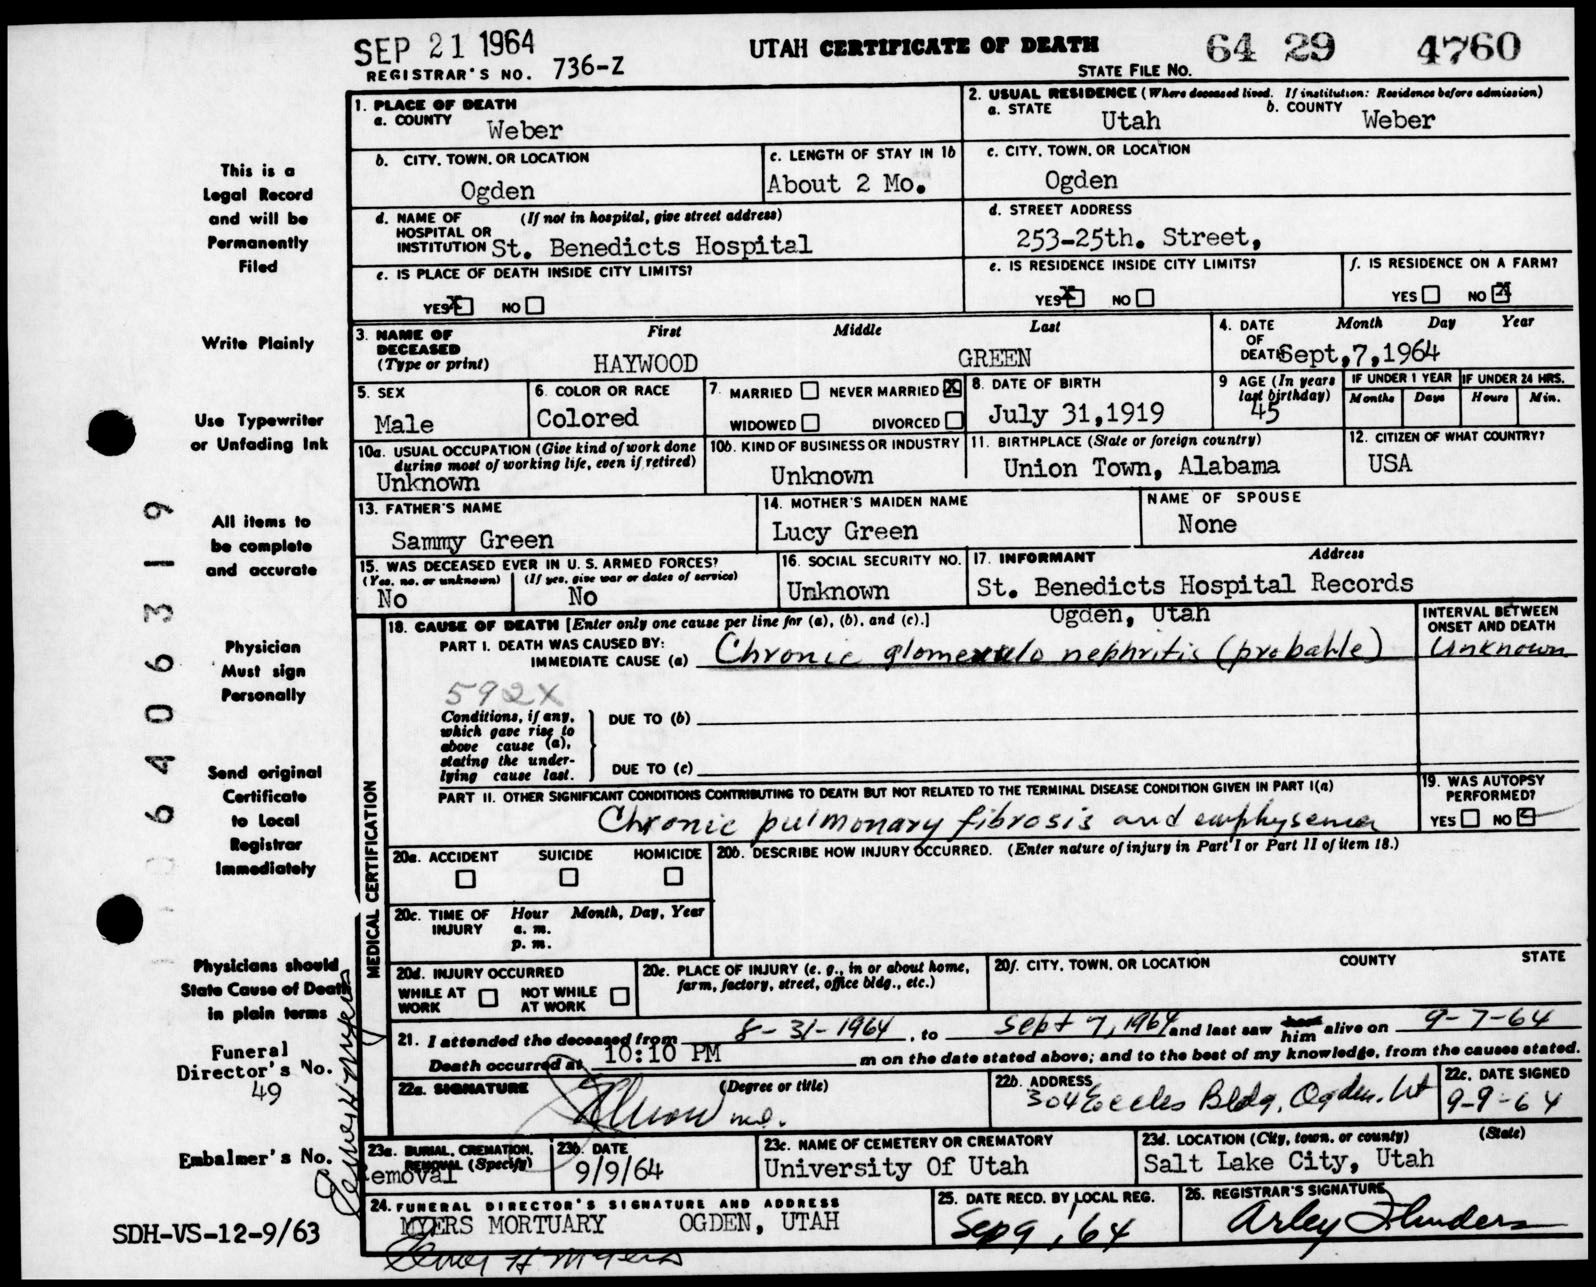 SEP 21 1964
UTAH CERTIFICATE OF DEATH
64 29 4760
REGISTRAR'S NO. 736-Z
STATE FILE NO.
1. PLACE OF DEATH
a. COUNTY
Weber
2. USUAL RESIDENCE (Where deceased lived. If institution: Residence before admission)
a. STATE
Utah
b. COUNTY
Weber
b. CITY, TOWN, OR LOCATION
Ogden
c. LENGTH OF STAY IN 1b
About 2 Mo.
c. CITY, TOWN, OR LOCATION
Ogden
d. NAME OF HOSPITAL OR INSTITUTION
(If not in hospital, give street address)
St. Benedicts Hospital
d. STREET ADDRESS
253-25th. Street,
e. IS PLACE OF DEATH INSIDE CITY LIMITS?
YES X NO
e. IS RESIDENCE INSIDE CITY LIMITS?
YES X NO
f. IS RESIDENCE ON A FARM?
YES NO X
3. NAME OF DECEASED
(Type or print)
First Middle Last
HAYWOOD GREEN
4. DATE OF DEATH
Month Day Year
Sept,7,1964
5. SEX
Male
6. COLOR OR RACE
Colored
7. MARRIED NEVER MARRIED X
WIDOWED DIVORCED
8. DATE OF BIRTH
July 31,1919
9 AGE (In years last birthday)
45
IF UNDER 1 YEAR
Months Days
IF UNDER 24 HRS.
Hours Min.
10a. USUAL OCCUPATION (Give kind of work done during most of working life, even if retired)
Unknown
10b. KIND OF BUSINESS OR INDUSTRY
Unknown
11. BIRTHPLACE (State or foreign country)
Union Town, Alabama
12. CITIZEN OF WHAT COUNTRY?
USA
13. FATHER'S NAME
Sammy Green
14. MOTHER'S MAIDEN NAME
Lucy Green
NAME OF SPOUSE
None
15. WAS DECEASED EVER IN U. S. ARMED FORCES?
(Yes, no, or unknown)
No
(If yes, give war or dates of service)
No
16. SOCIAL SECURITY NO.
Unknown
17. INFORMANT Address
St. Benedicts Hospital Records
Ogden, Utah
MEDICAL CERTIFICATION
18. CAUSE OF DEATH [Enter only one cause per line for (a), (b), and (c).]
INTERVAL BETWEEN ONSET AND DEATH
PART I. DEATH WAS CAUSED BY:
IMMEDIATE CAUSE (a) Chronic glomerulo nephritis (probable)
Unknown
592X
Conditions, if any, which gave rise to above cause (a), stating the underlying cause last.
DUE TO (b)
DUE TO (c)
PART II. OTHER SIGNIFICANT CONDITIONS CONTRIBUTING TO DEATH BUT NOT RELATED TO THE TERMINAL DISEASE CONDITION GIVEN IN PART I(a)
Chronic pulmonary fibrosis and emphysema
19. WAS AUTOPSY PERFORMED?
YES NO
20a. ACCIDENT SUICIDE HOMICIDE
20b. DESCRIBE HOW INJURY OCCURRED. (Enter nature of injury in Part I or Part II of item 18.)
20c. TIME OF INJURY
Hour Month, Day, Year
a. m.
p. m.
20d. INJURY OCCURRED
WHILE AT WORK NOT WHILE AT WORK
20e. PLACE OF INJURY (e. g., in or about home, farm, factory, street, office bldg., etc.)
20f. CITY, TOWN, OR LOCATION COUNTY STATE
21. I attended the deceased from 8-31-1964, to Sept 7, 1964 and last saw him alive on 9-7-64
Death occurred at 10:10 PM m on the date stated above; and to the best of my knowledge, from the causes stated.
22a. SIGNATURE (Degree or title)
22b. ADDRESS
304 Eccles Bldg, Ogden, Ut
22c. DATE SIGNED
9-9-64
23a. BURIAL, CREMATION, REMOVAL (Specify)
Removal
23b. DATE
9/9/64
23c. NAME OF CEMETERY OR CREMATORY
University Of Utah
23d. LOCATION (City, town, or county) (State)
Salt Lake City, Utah
24. FUNERAL DIRECTOR'S SIGNATURE AND ADDRESS
MYERS MORTUARY OGDEN, UTAH
Elmer H Myers
25. DATE RECD. BY LOCAL REG.
Sep 9, '64
26. REGISTRAR'S SIGNATURE
Arley Flinders
This is a
Legal Record
and will be
Permanently
Filed
Write Plainly
Use Typewriter
or Unfading Ink
All items to
be complete
and accurate
Physician
Must sign
Personally
Send original
Certificate
to Local
Registrar
Immediately
Physicians should
State Cause of Death
in plain terms
Funeral
Director's No.
49
Embalmer's No.
Elmer H Myers
SDH-VS-12-9/63
6406319